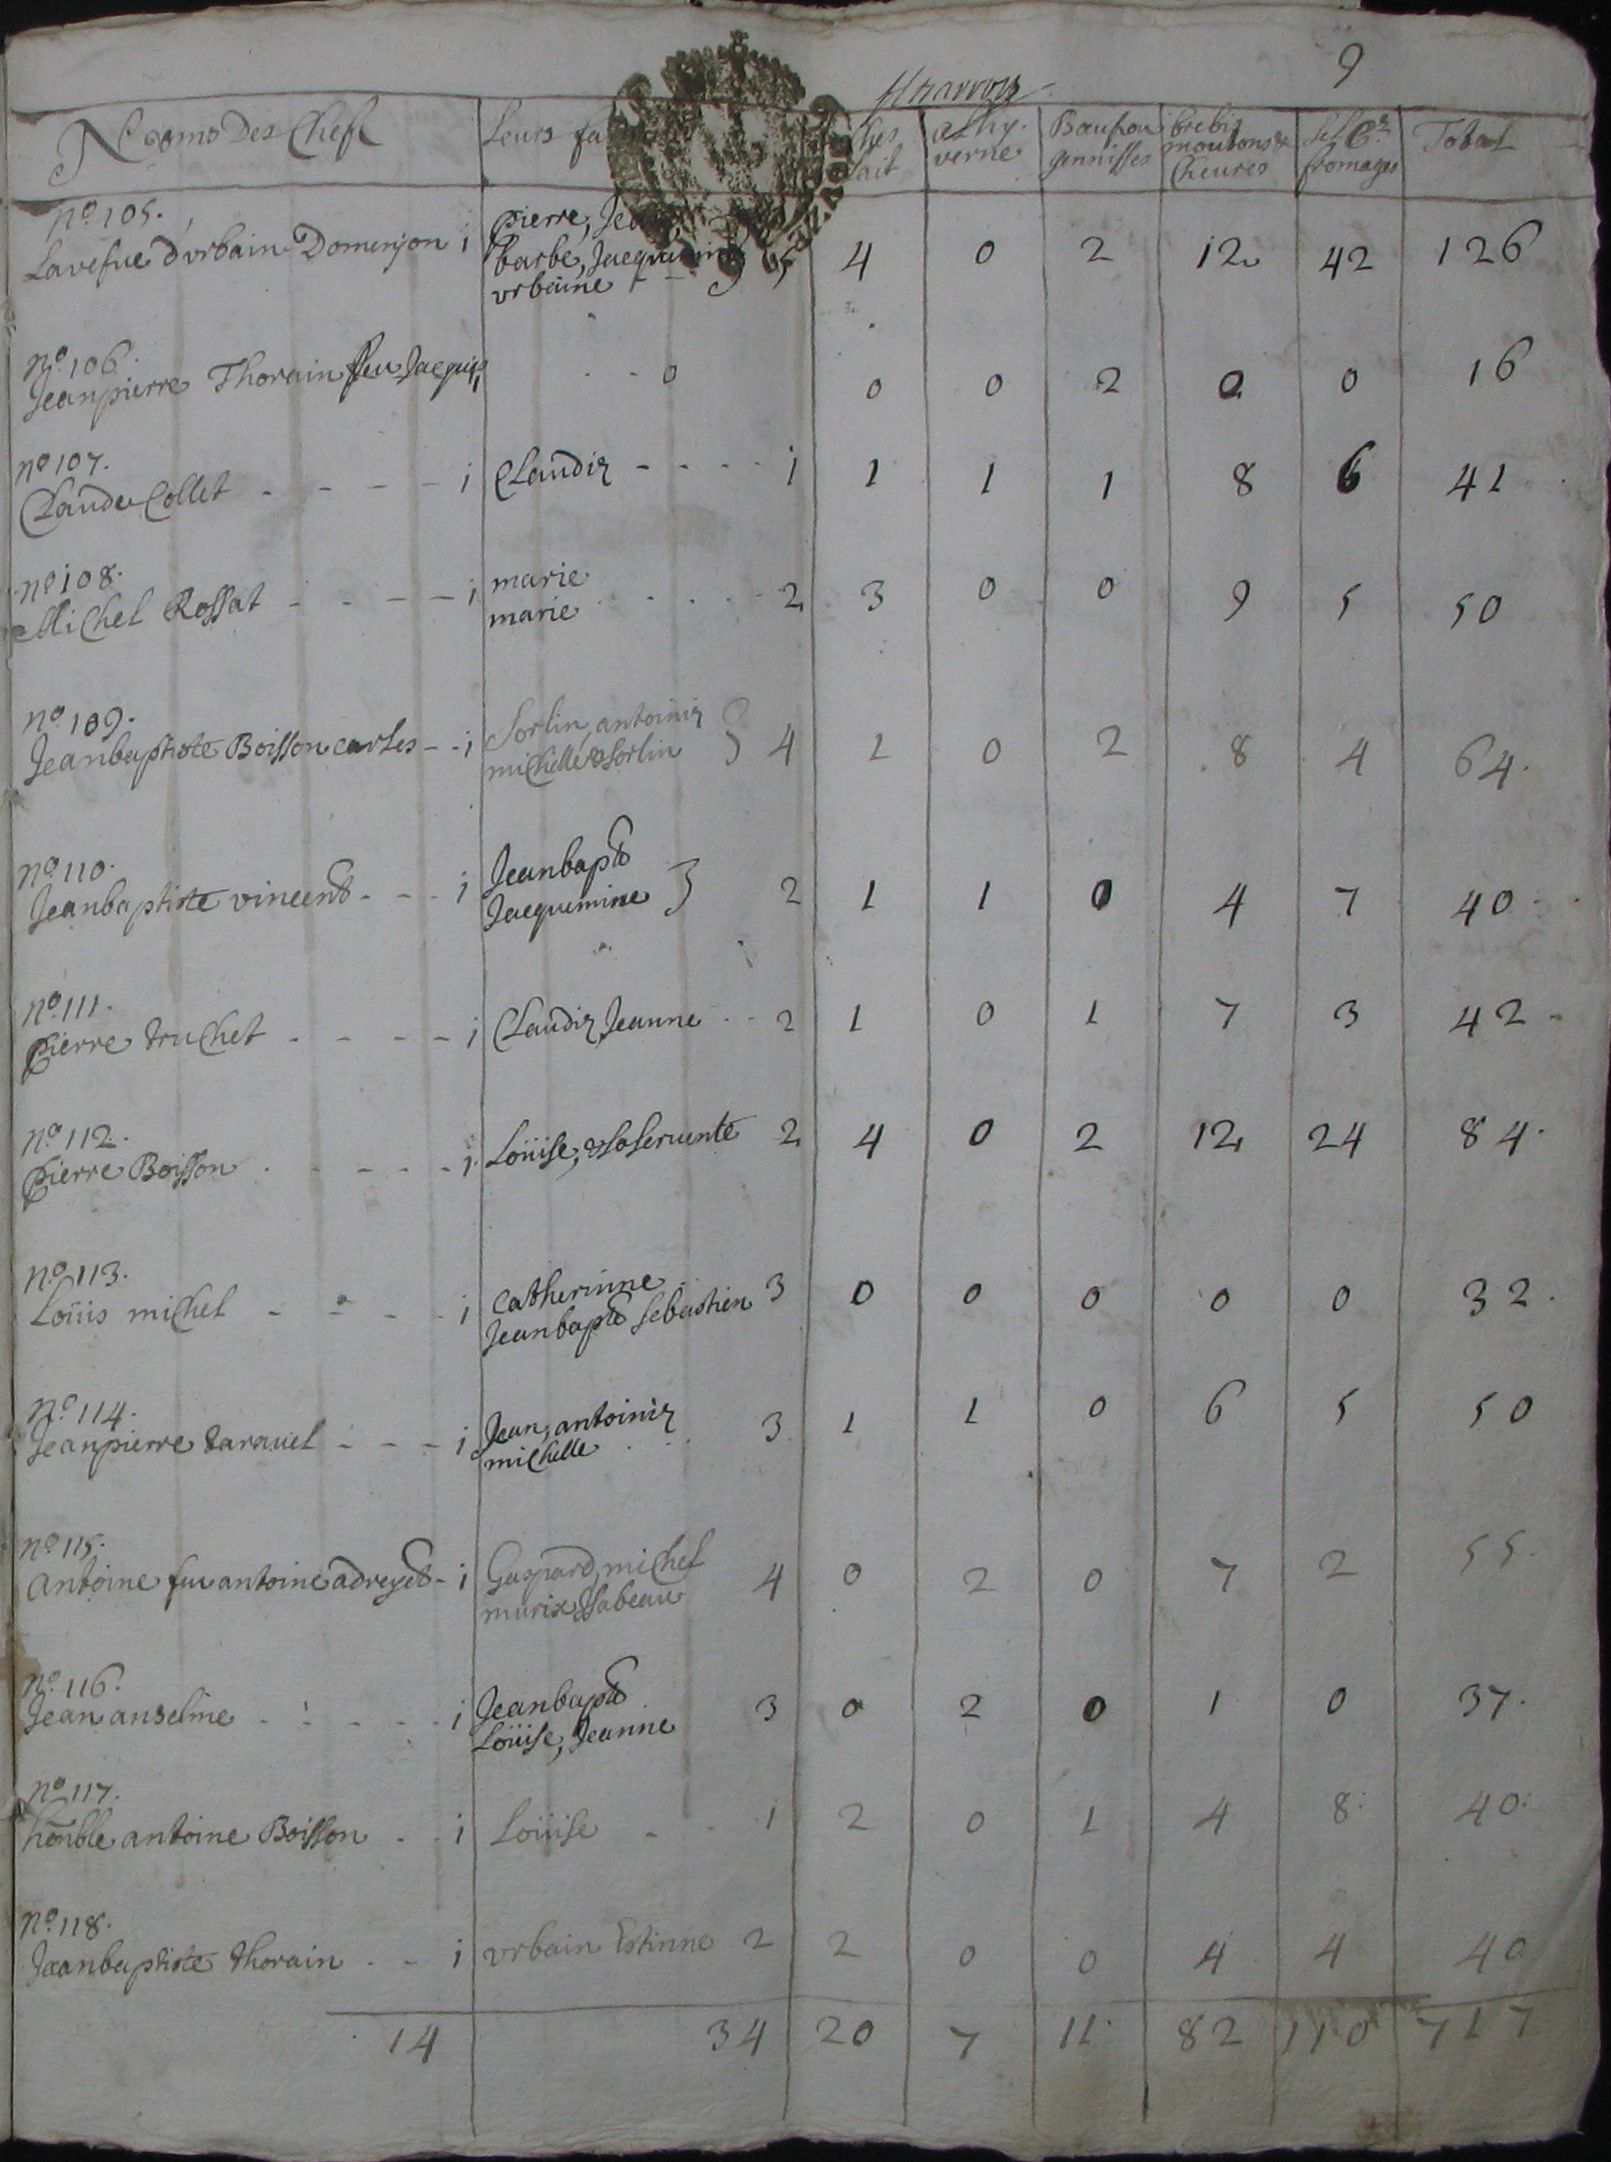 9
Noms Des Chefs | Leurs | lait | a hy- verne | Bœufs ou gennisses | brebis moutons & Cheures | sel fromages | Total
No 105.
Lavefue d'vrbain Domenjon i | pierre, barbe, Jacquemine vrbaine 5 | 4 | 0 | 2 | 12 | 42 | 126
No 106.
Jeanpierre Thorain feu Jacques | 0 | 0 | 0 | 2 | 0 | 0 | 16
No 107.
Claude Collet - - - - i | Claudiz - - - - i | 1 | 1 | 1 | 8 | 6 | 41
No 108.
Michel Rossat - - - - i | marie marie 2 | 3 | 0 | 0 | 9 | 5 | 50
No 109.
Jeanbaptiste Boisson carles - - i | Sorlin, antoiniz michelle & Sorlin } 4 | 1 | 0 | 2 | 8 | 4 | 64.
No 110.
Jeanbaptiste vincend - - - i | Jeanbapte Jacquemine } 2 | 1 | 1 | 0 | 4 | 7 | 40.
No 111.
pierre truchet - - - - i | Claudiz Jeanne - - 2 | 1 | 0 | 1 | 7 | 3 | 42
No 112.
pierre Boisson - - - - i | Loüise, & sa seruante 2 | 4 | 0 | 2 | 12 | 24 | 84.
No 113.
Loüis michel - - - - i | Catherinne Jeanbapte sebastien 3 | 0 | 0 | 0 | 0 | 0 | 32.
No 114.
Jeanpierre tarauel - - - i | Jean, antoiniz michelle 3 | 1 | 1 | 0 | 6 | 5 | 50
No 115.
Antoine feu antoine adreyct - i | Gaspard, michel marie & Isabeau 4 | 0 | 2 | 0 | 7 | 2 | 55.
No 116.
Jean anselme - - - - i | Jeanbapte Loüise, Jeanne 3 | 0 | 2 | 0 | 1 | 0 | 37.
No 117.
honble antoine Boisson - - i | Loüise - - i | 2 | 0 | 1 | 4 | 8 | 40.
No 118.
Jeanbaptiste thorain - - i | vrbain Estinne 2 | 2 | 0 | 0 | 4 | 4 | 40
14 | 34 | 20 | 7 | 11 | 82 | 110 | 717